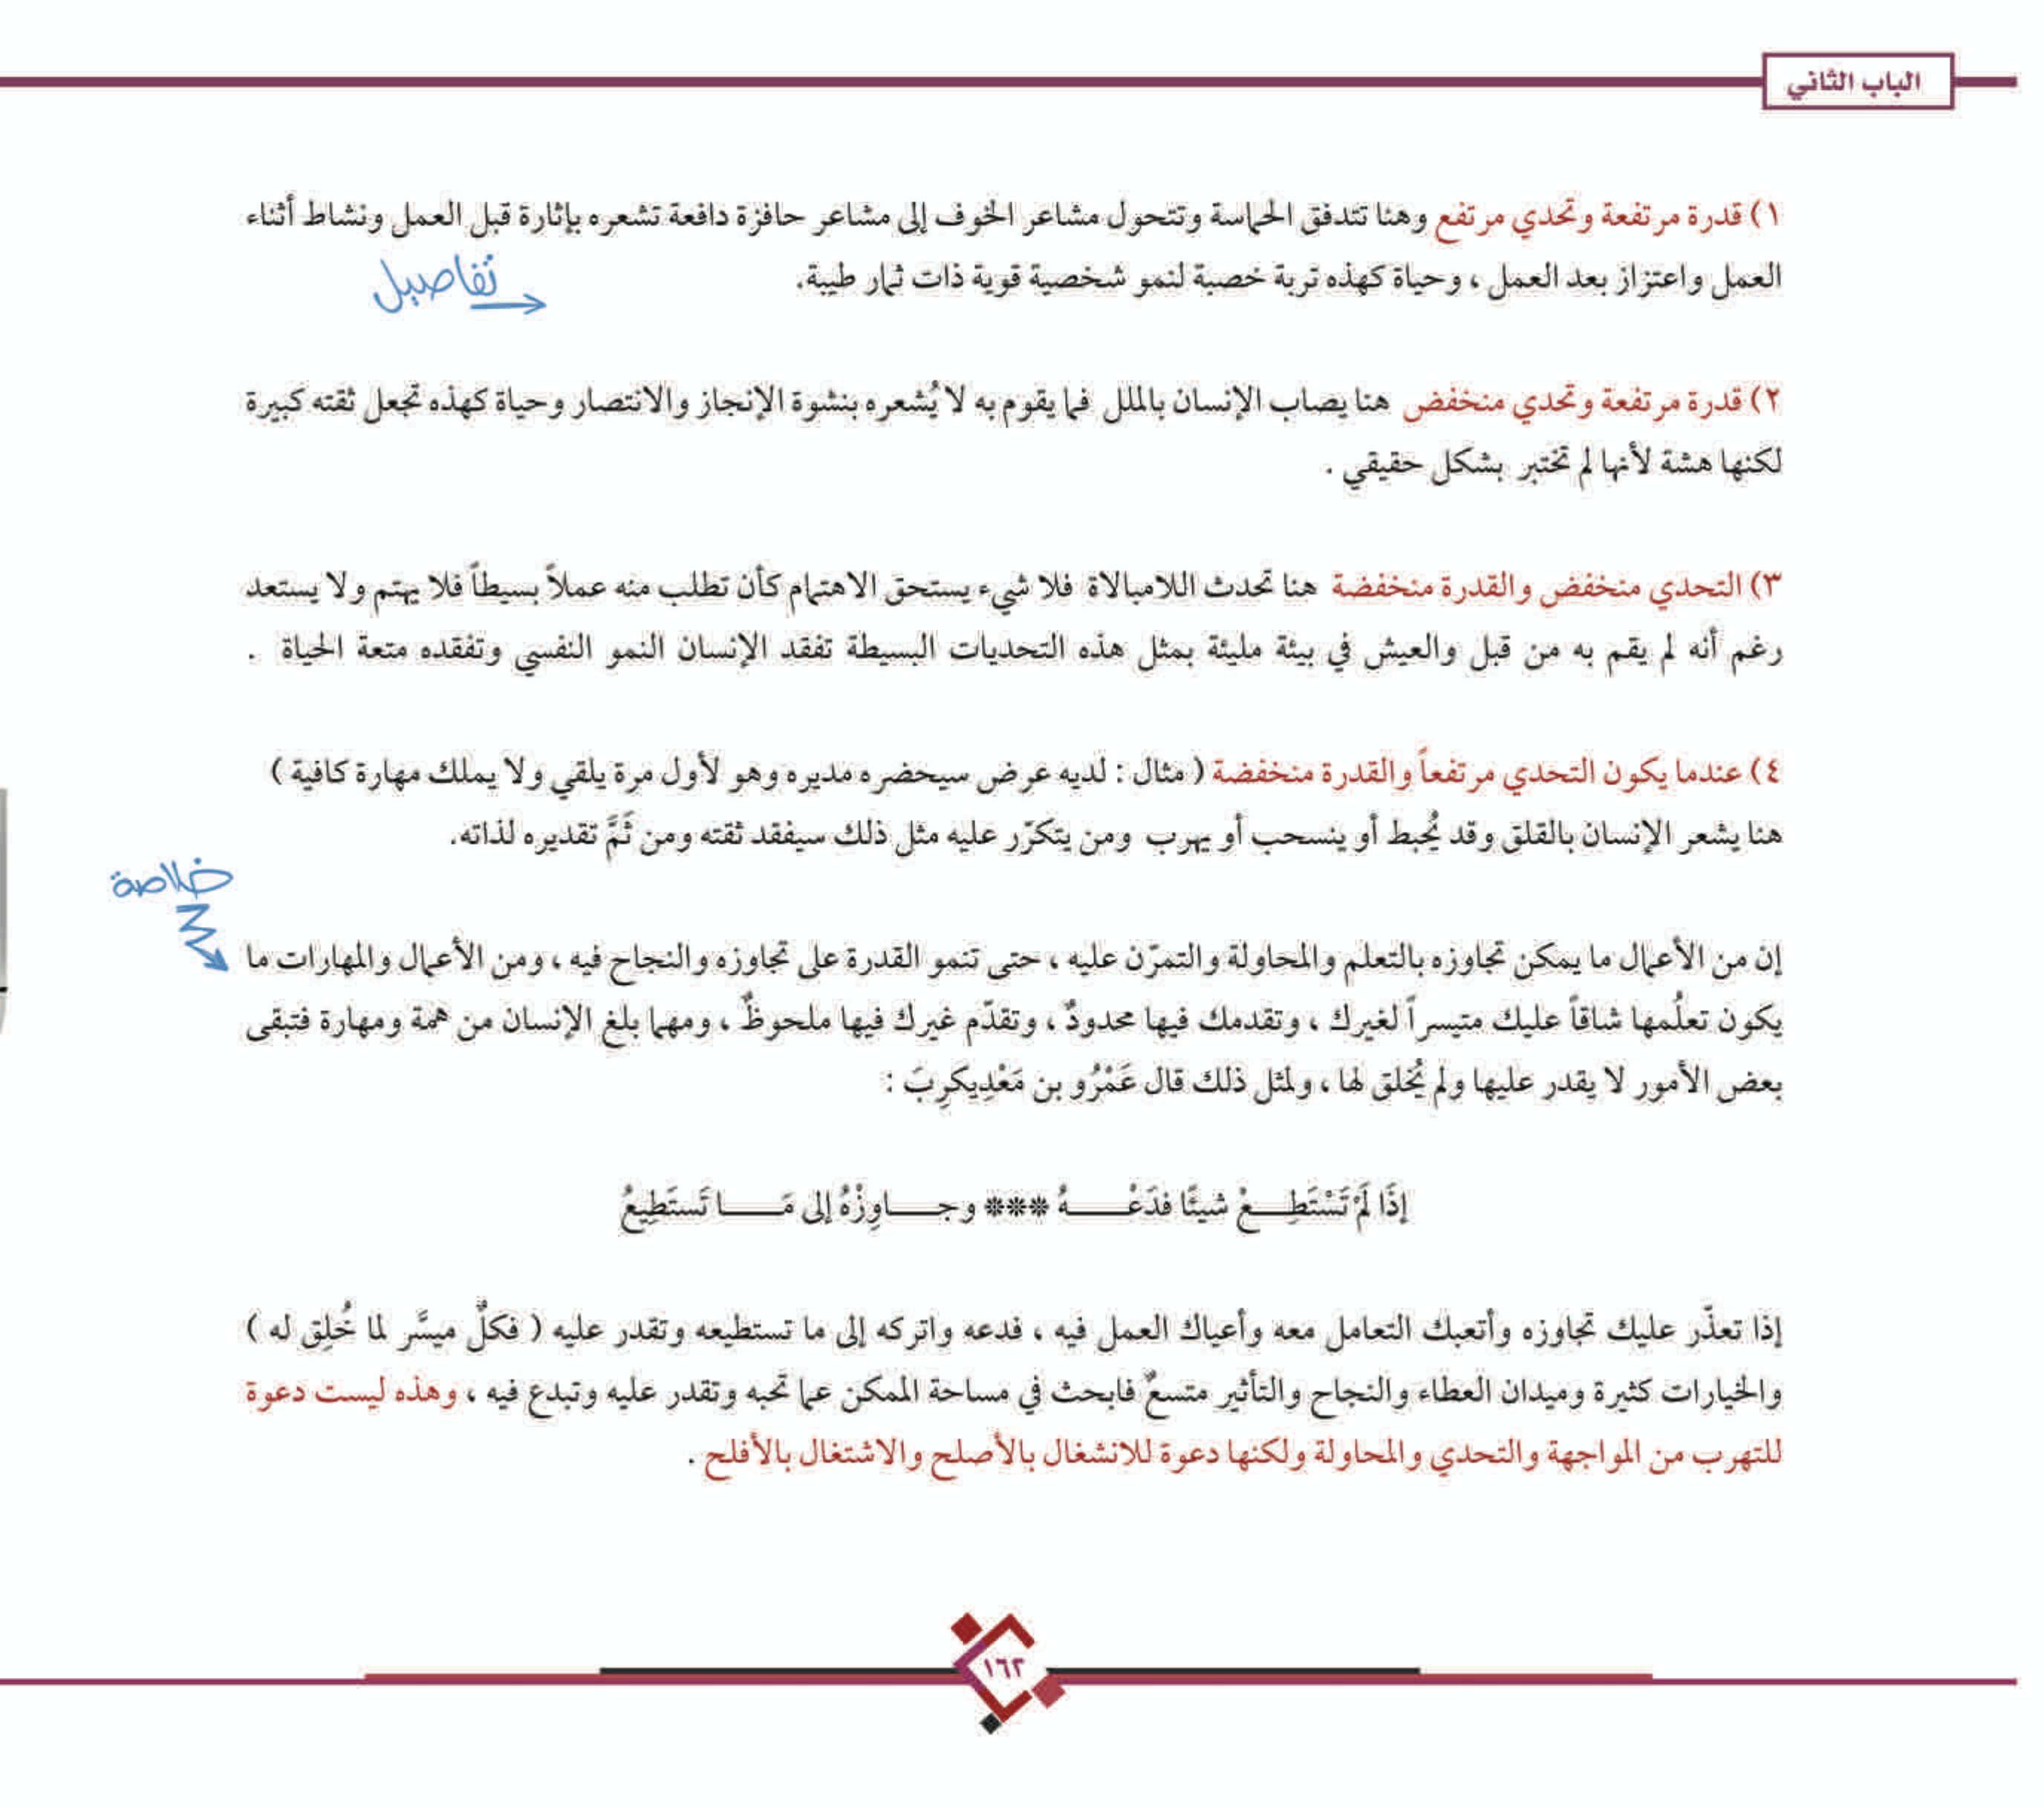 الباب الثاني
١) قدرة مرتفعة وتحدي مرتفع وهنا تتدفق الحماسة وتتحول مشاعر الخوف إلى مشاعر حافزة دافعة تشعره بإثارة قبل العمل ونشاط أثناء
العمل واعتزاز بعد العمل ، وحياة كهذه تربة خصبة لنمو شخصية قوية ذات ثمار طيبة.
تفاصيل
٢) قدرة مرتفعة وتحدي منخفض هنا يصاب الإنسان بالملل فما يقوم به لا يُشعره بنشوة الإنجاز والانتصار وحياة كهذه تجعل ثقته كبيرة
لكنها هشة لأنها لم تختبر بشكل حقيقي .
٣) التحدي منخفض والقدرة منخفضة هنا تحدث اللامبالاة فلا شيء يستحق الاهتمام كأن تطلب منه عملاً بسيطاً فلا يهتم ولا يستعد
رغم أنه لم يقم به من قبل والعيش في بيئة مليئة بمثل هذه التحديات البسيطة تفقد الإنسان النمو النفسي وتفقده متعة الحياة .
٤) عندما يكون التحدي مرتفعاً والقدرة منخفضة ( مثال : لديه عرض سيحضره مديره وهو لأول مرة يلقي ولا يملك مهارة كافية )
هنا يشعر الإنسان بالقلق وقد يُحبط أو ينسحب أو يهرب ومن يتكرّر عليه مثل ذلك سيفقد ثقته ومن ثَمَّ تقديره لذاته.
خلاصة
إن من الأعمال ما يمكن تجاوزه بالتعلم والمحاولة والتمرّن عليه ، حتى تنمو القدرة على تجاوزه والنجاح فيه ، ومن الأعمال والمهارات ما
يكون تعلُمها شاقاً عليك متيسراً لغيرك ، وتقدمك فيها محدودٌ ، وتقدّم غيرك فيها ملحوظٌ ، ومهما بلغ الإنسان من همة ومهارة فتبقى
بعض الأمور لا يقدر عليها ولم يُخلق لها ، ولمثل ذلك قال عَمْرُو بن مَعْدِيكرِبَ :
إذَا لَمْ تَسْتَطِــــعْ شيئًا فدَعْــــــهُ *** وجــــــاوِزْهُ إلى مَــــــا تَستَطِيعُ
إذا تعذّر عليك تجاوزه وأتعبك التعامل معه وأعياك العمل فيه ، فدعه واتركه إلى ما تستطيعه وتقدر عليه ( فكلٌ ميسَّر لما خُلِق له )
والخيارات كثيرة وميدان العطاء والنجاح والتأثير متسعٌ فابحث في مساحة الممكن عما تحبه وتقدر عليه وتبدع فيه ، وهذه ليست دعوة
للتهرب من المواجهة والتحدي والمحاولة ولكنها دعوة للانشغال بالأصلح والاشتغال بالأفلح .
١٦٢